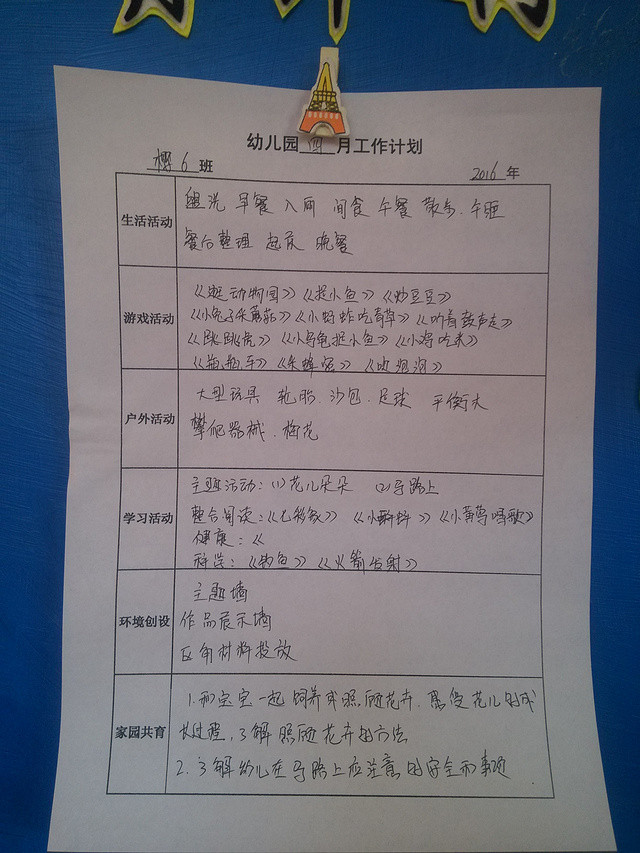 幼儿园 四 月工作计划
樱6 班 2016 年
生活活动
盥洗 早餐 入厕 间食 午餐 散步、午睡
餐后整理 起床 晚餐
游戏活动
《逛动物园》《捉小鱼》《炒豆豆》
《小兔子采蘑菇》《小蚂蚱吃青草》《听着鼓声走》
《跳跳虎》《小乌龟捉小鱼》《小鸡吃米》
《拖拖车》《采蜂蜜》《吹泡泡》
户外活动
大型玩具 轮胎、沙包、足球 平衡木
攀爬器械、梅花
学习活动
主题活动：(1)花儿朵朵 (2)马路上
整合阅读：《七彩 》《小蝌蚪》《小黄莺唱歌》
健康：《
科学：《钓鱼》《火箭发射》
环境创设
主题墙
作品展示墙
区角材料投放
家园共育
1.和宝宝一起饲养或照顾花卉、感受花儿的成
长过程，了解照顾花卉的方法
2.了解幼儿在马路上应注意的安全和事项